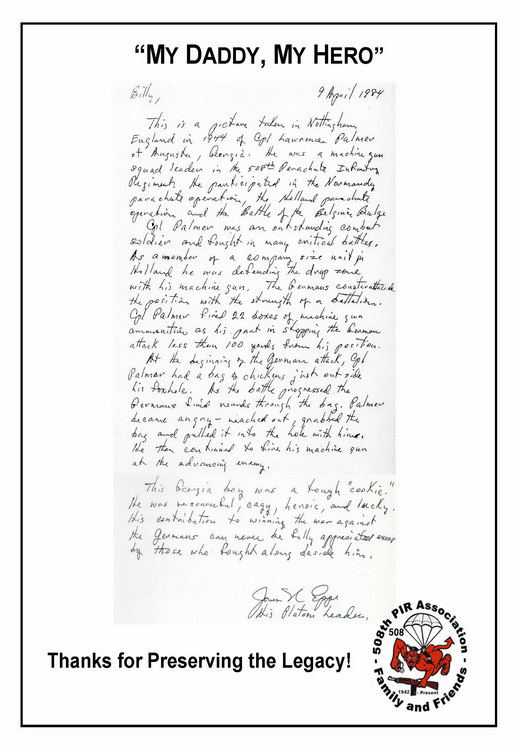 "MY DADDY, MY HERO"
Billy,
9 April 1984
This is a picture taken in Nottingham
England in 1944 of Cpl Lawrence Palmer
of Augusta, Georgia. He was a machine gun
squad leader in the 508th Parachute Infantry
Regiment. He participated in the Normandy
parachute operation, the Holland parachute
operation and the Battle of the Belgian Bulge
Cpl Palmer was an outstanding combat
soldier and fought in many critical battles.
As a member of a company size unit in
Holland he was defending the drop zone
with his machine gun. The Germans counterattacked
the position with the strength of a battalion.
Cpl Palmer fired 22 boxes of machine gun
ammunition as his part in stopping the German
attack less than 100 yards from his position.
At the beginning of the German attack, Cpl
Palmer had a bag of chickens just outside
his foxhole. As the battle progressed the
Germans fired rounds through the bag. Palmer
became angry - reached out, grabbed the
bag and pulled it into the hole with him.
He then continued to fire his machine gun
at the advancing enemy.
This Georgia boy was a tough "cookie."
He was resourceful, cagy, heroic, and lucky.
His contribution to winning the war against
the Germans can never be fully appreciated except
by those who fought along beside him.
His Platoon Leader.
Thanks for Preserving the Legacy!
508th PIR Association
508
1942 - Present
Family and Friends